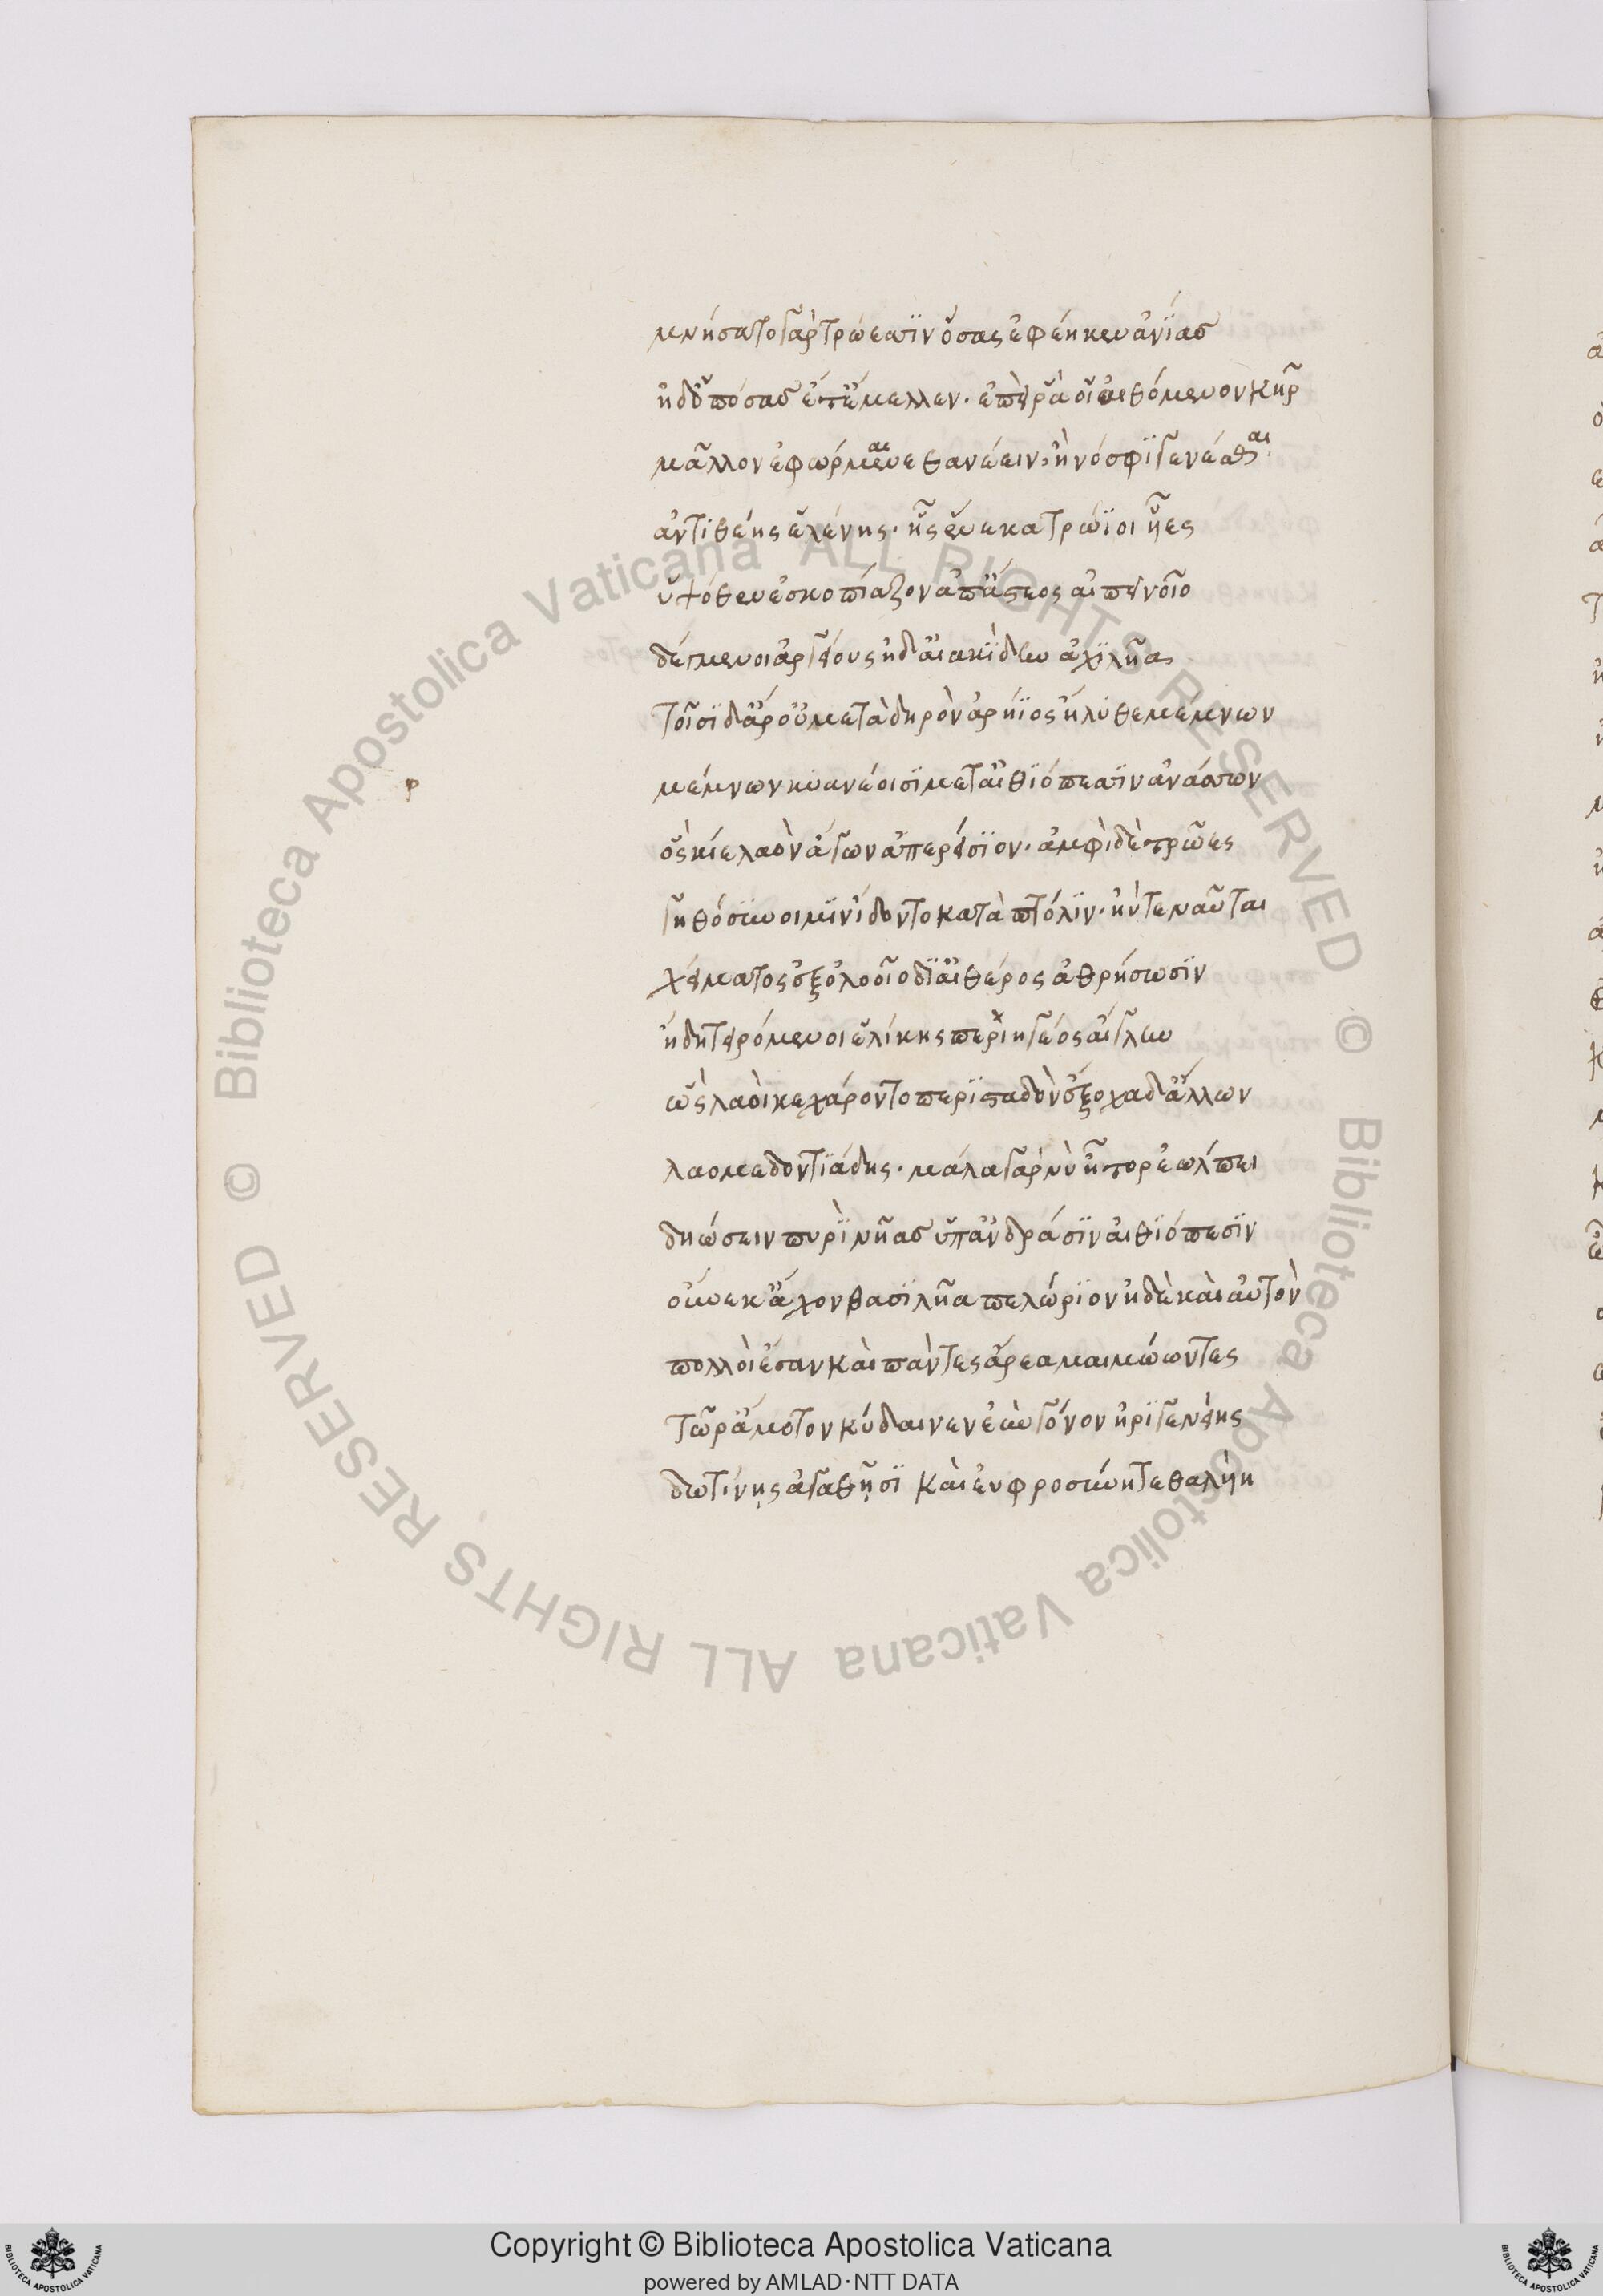 μνήσατο γὰρ τρώεσσιν ὅσας ἐφέηκεν ἀνίας
ἠδ' ὁπόσας ἔτ' ἔμελλεν· ἐπεὶ ῥά οἱ αἰθόμενον κῆρ
μᾶλλον ἐφώρμαινε θανέειν, ἢ νόσφι γενέσθαι
ἀντιθέης ἑλένης· ἧς εἵνεκα τρώϊοι υἷες
ὑψόθεν ἐσκοπίαζον ἀπ' ἄστεος αἰπεινοῖο
δέγμενοι ἀργείους ἠδ' αἰακίδην ἀχιλῆα
τοῖσι δ' ἄρ' οὐ μετὰ δηρὸν ἀρήϊος ἤλυθε μέμνων
μέμνων κυανέοισι μετ' αἰθιόπεσσιν ἀνάσσων
ὃς κίε λαὸν ἄγων ἀπερείσιον· ἀμφὶ δὲ τρῶες
γηθόσυνοί μιν ἴδοντο κατὰ πτόλιν· ἠύτε ναῦται
χείματος ἐξ ὀλοοῖο δι' αἰθέρος ἀθρήσωσιν
ἤδη τειρόμενοι ἑλίκης περιηγέος αἴγλην
ὣς λαοὶ κεχάροντο περισταδὸν ἔξοχα δ' ἄλλων
λαομεδοντιάδης· μάλα γάρ νύ οἱ ἦτορ ἐώλπει
δηώσειν πυρὶ νῆας ὑπ' ἀνδράσιν αἰθιόπεσιν
οὕνεκ' ἄχον βασιλῆα πελώριον ἠδὲ καὶ αὐτοὶ
πολλοὶ ἔσαν καὶ πάντες ἄρεα μαιμώωντες
τῶ ῥ' ἄμοτον κύδαινεν ἐὺν γόνον ἠριγενείης
δωτίνῃς ἀγαθῇσι καὶ εὐφροσύνῃ τεθαλυίῃ
Copyright © Biblioteca Apostolica Vaticana
powered by AMLAD·NTT DATA